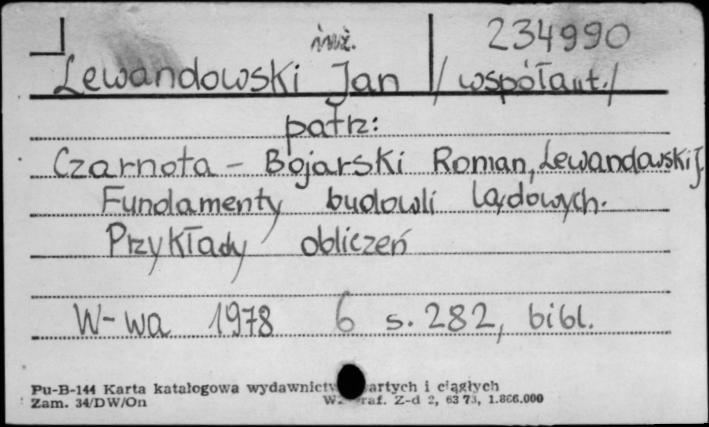 inż. 234990
Lewandowski Jan /współaut./
patrz:
Czarnota - Bojarski Roman, Lewandowski J.
Fundamenty budowli lądowych.
Przykłady obliczeń
W-wa 1978 6 s. 282, bibl.
Pu-B-144 Karta katalogowa wydawnictw artych i ciągłych
Zam. 34/DW/On raf. Z-d 2, 63 73, 1.866.000